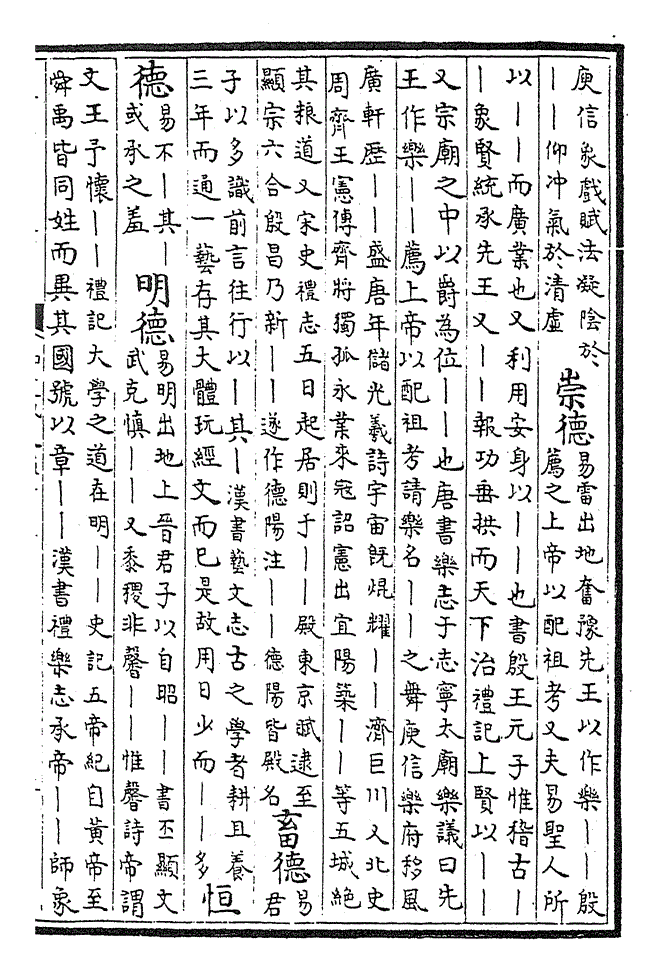 庾信象戲賦法凝陰於
——仰冲氣於清虛
崇德
易雷出地奮豫先王以作樂——殷
薦之上帝以配祖考又夫易聖人所
以——而廣業也又利用安身以——也書殷王元子惟稽古—
—象賢統承先王又——報功垂拱而天下治禮記上賢以——
又宗廟之中以爵為位——也唐書樂志于志寧太廟樂議曰先
王作樂——薦上帝以配祖考請樂名——之舞庾信樂府移風
廣軒歷——盛唐年儲光羲詩宇宙旣焜耀——濟巨川又北史
周齊王憲傳齊將獨孤永業來寇詔憲出宜陽築——等五城絶
其粮道又宋史禮志五日起居則于——殿東京賦逮至
顯宗六合殷昌乃新——遂作德陽注——德陽皆殿名
畜德
易
君
子以多識前言往行以—其—漢書藝文志古之學者耕且養
三年而通一藝存其大體玩經文而已是故用日少而——多
恒
德
易不—其—
或承之羞
明德
易明出地上晉君子以自昭——書丕顯文
武克慎——又黍稷非馨——惟馨詩帝謂
文王予懷——禮記大學之道在明——史記五帝紀自黃帝至
舜禹皆同姓而異其國號以章——漢書禮樂志承帝——師象